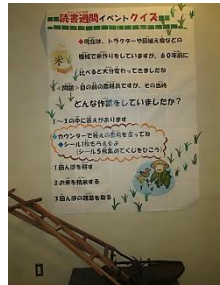 読書週間イベントクイズ
◆現在は、トラクターや田植え機などの
機械で米作りをしていますが、60年前に
比べると大分変わってきました
<問題>目の前の農機具ですが、その当時
どんな作業をしていましたか?
1~3の中に答えがあります
◆カウンターで答えの番号を言ってね
◆シール1枚もらえるよ
(シール5枚集めてくじをひこう)
1田んぼを耕す
2お米を精米する
3田んぼの雑草を取る